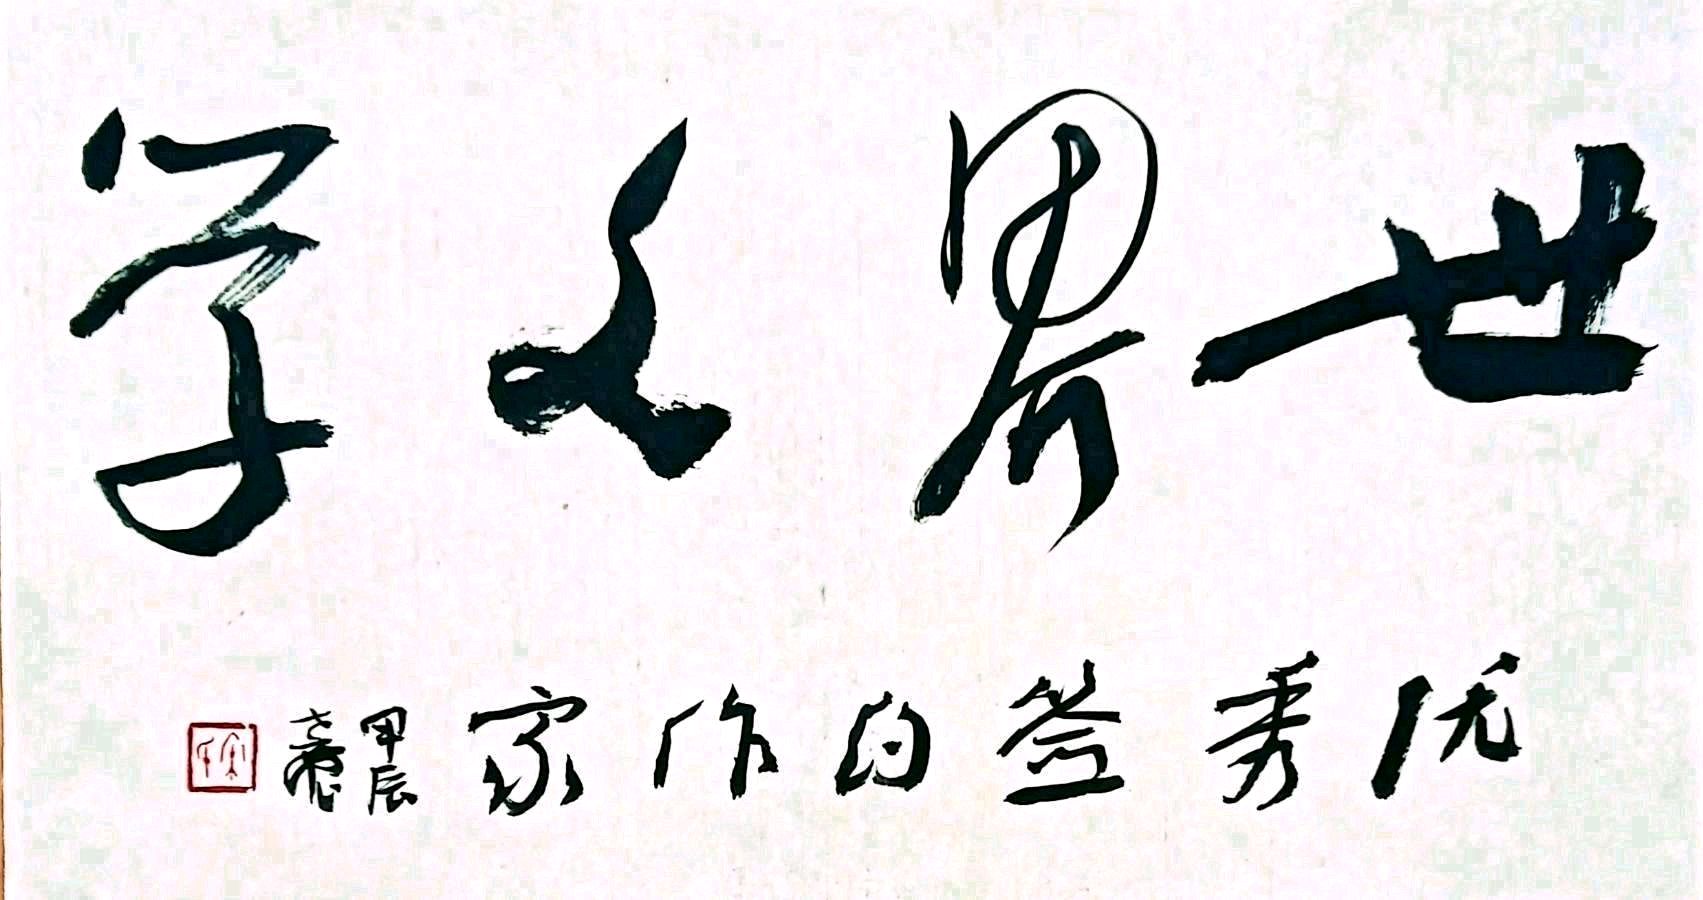 世界文学
优秀签约作家
甲辰